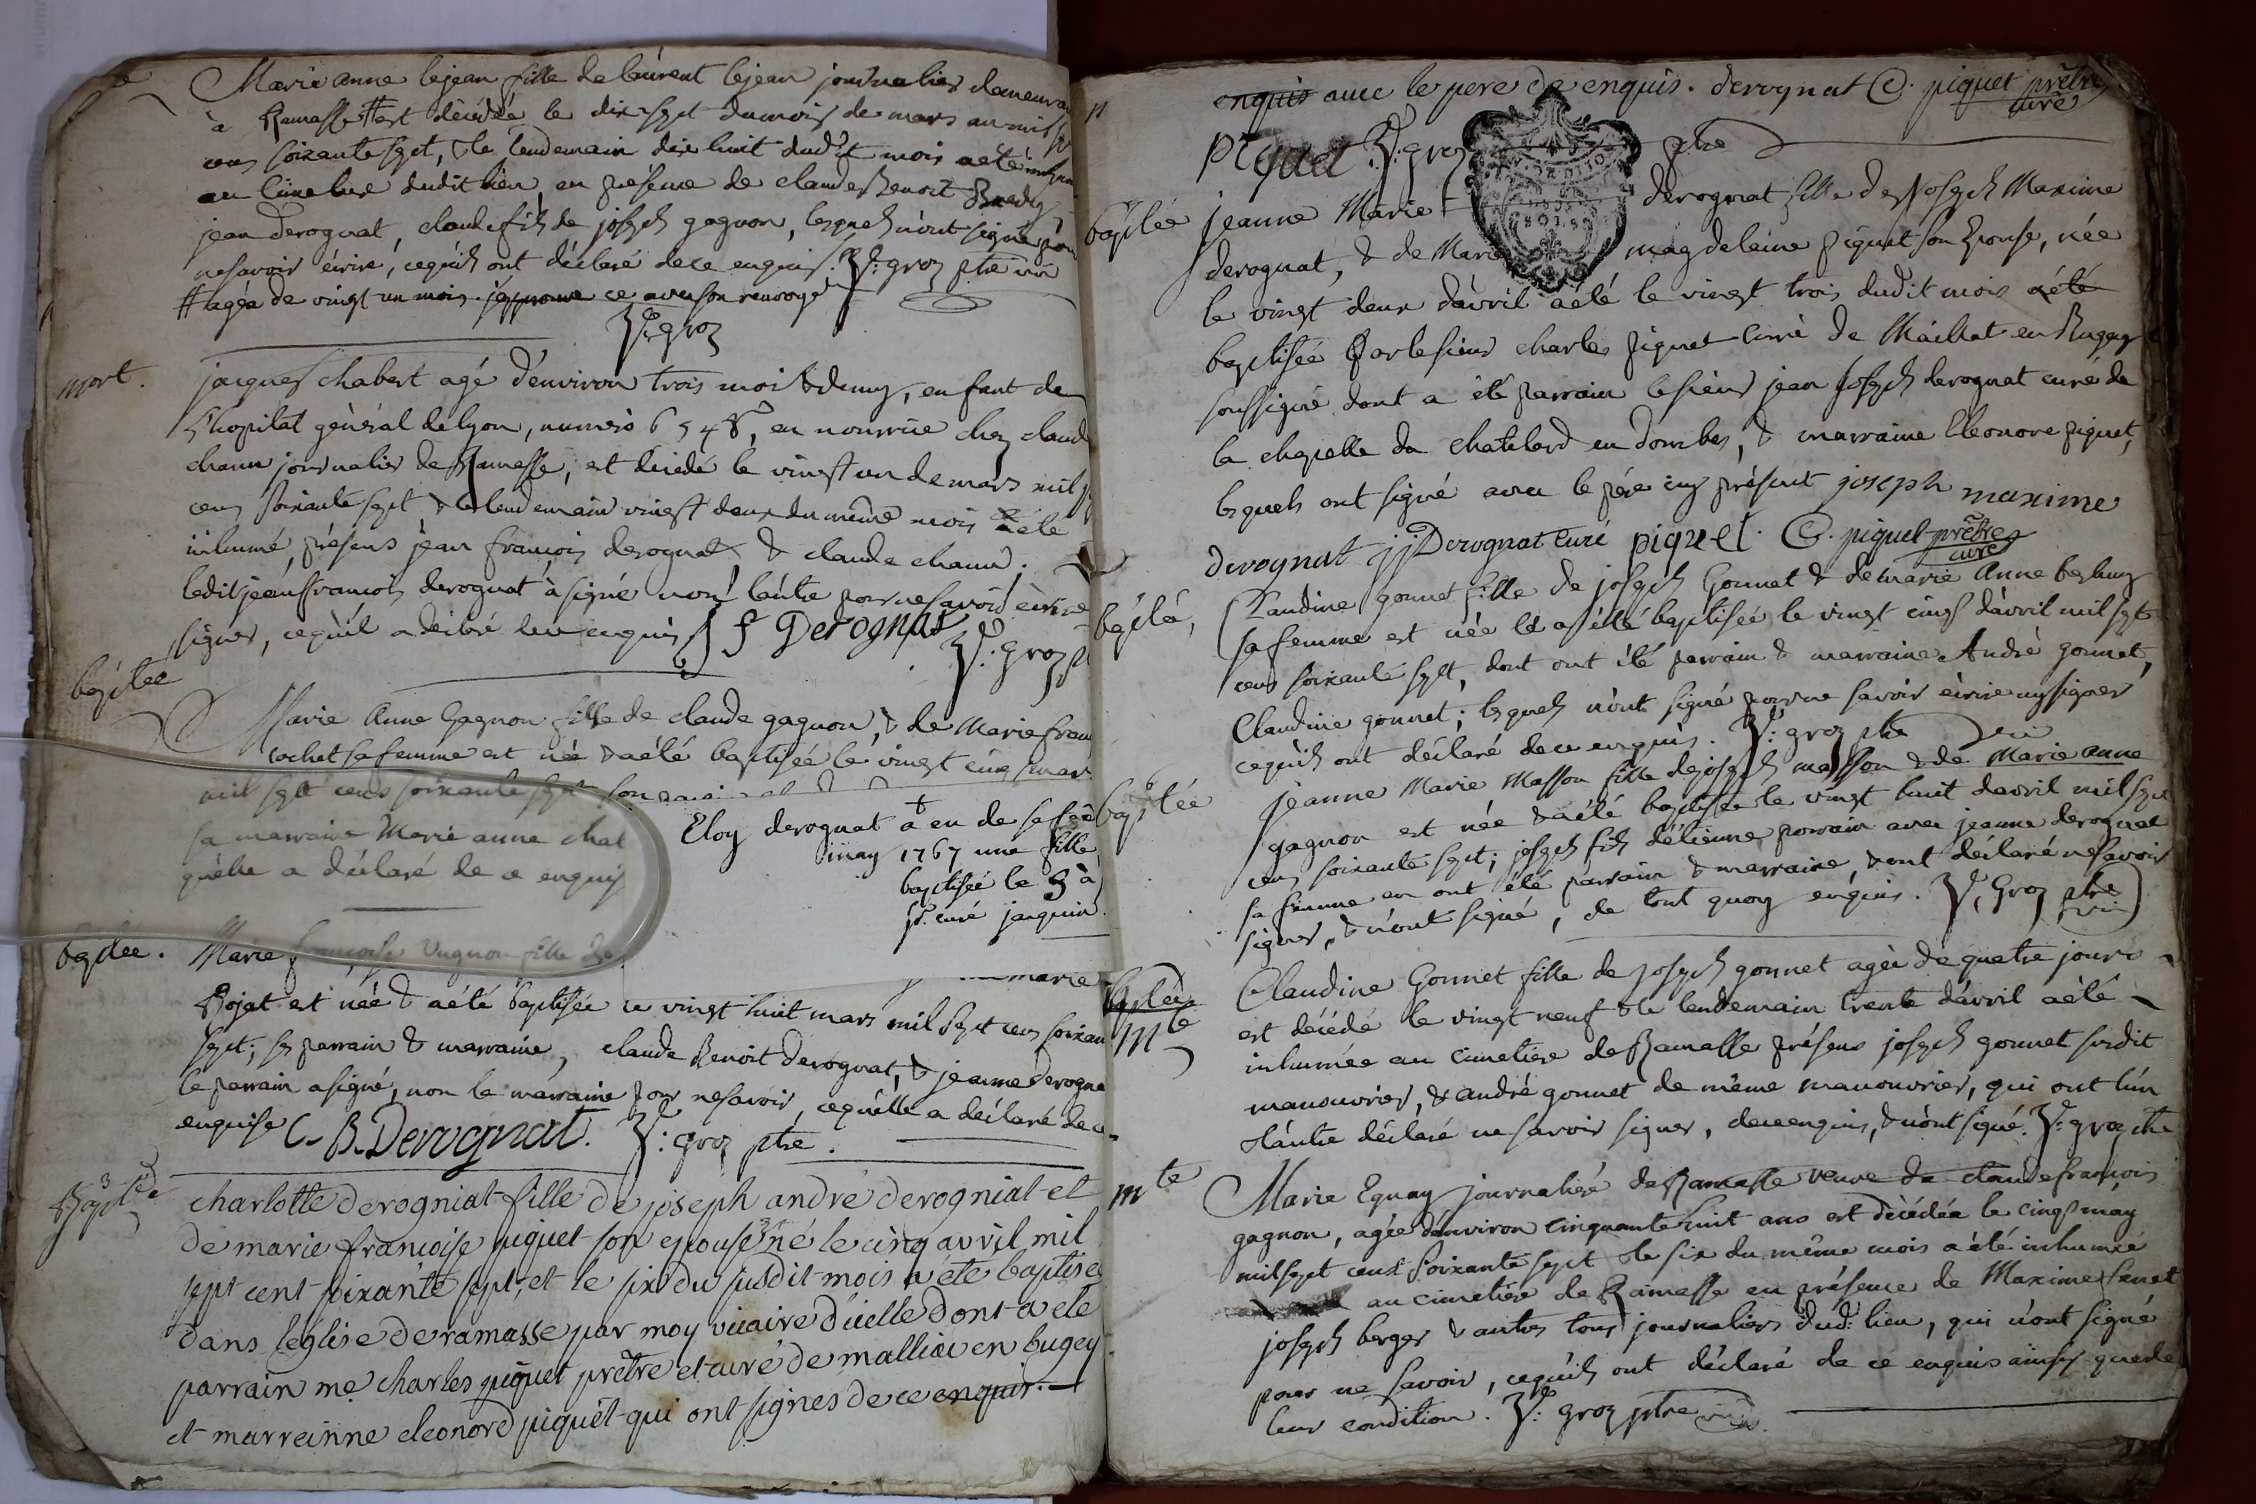 Marie anne lejean fille de laurent lejean journalier demeurant
à Ramasse # est décédée le dix sept du mois de mars an mil
cens soixante sept, & le lendemain dix huit dud.t mois a été
au cimetiere dudit lieu en presence de claude Benoit
jean derognat, claude fils de joseph gagnon, lesquels n'ont signé pour
ne savoir écrire, cequ'ils ont déclaré de ce enquis. groz ptre vic
# agéa de vingt un mois. j'approuve ce avec son renvoy
groz
mort.
jacques chabert agé d'environ trois mois & demy, enfant de
l'hopital général de lyon, numéro 6548, en nourrice chez claud
chanu journalier de Ramasse, est décédé le vingt un de mars mil
cens soixante sept & le lendemain vingt deux du même mois a été
inhumé, présens jean françois derognat, & claude chanu.
ledit jean françois derognat à signé non l'autre pour ne savoir écrire
signer, cequ'il a déclaré enquis J f Derognat
groz
baptee
Marie Anne Gagnon fille de claude gagnon, & de Marie fran
cochet sa femme est née & a été baptisée le vingt cinq mars
mil sept cens soixante sept son
sa marraine Marie anne chat
qu'elle a déclaré de ce enquis
Eloy derognat a eu de sa fee
may 1767 une fille
baptisée le 9 à
sr. curé jacquin.
baptee.
Marie françoise Vugnon fille de
marie
Bojat est née & a été baptisée le vingt huit mars mil sept cens soixan
sept; ses parrain & marraine, claude Benoit derognat, & jeanne derogna
le parrain a signé, non la marraine pour ne savoir, cequ'elle a déclaré de ce
enquise C B. Derognat. groz ptre.
charlotte derogniat fille de joseph andré derogniat et
de marie francoise piquet son epouse né le cinq avril mil
sept cent soixante sept, et le six du susdit mois a été baptisé
dans l'église de ramasse par moy vicaire d'icelle dont a ete
parrain me charles piquet prêtre et curé de malliai en bugey
et marreinne eleonord piquet qui ont signes de ce enquis.
enquis avec le pere de enquis. derognat C. piquet prêtre
curé
piquet groz ptre
baptée
jeanne Marie derognat fille de Joseph Maxime
derognat, & de Marie magdeleine piquet son Epouse, née
le vingt deux d'avril a été le vingt trois dudit mois a été
baptisée par le sieur charles piquet curé de Maillat en Bugey
soussigné dont a été parrain le sieur jean joseph derognat curé de
la chapelle du chatelard en dombes, & marraine Eleonore piquet,
lesquels ont signé avec le père icy présent joseph maxime
derognat jj Derognat curé piquet. C. piquet prêtre
curé
baptée,
Claudine gonnet fille de joseph Gonnet & de marie Anne
sa femme est née & a été baptisée le vingt cinq d'avril mil sept
cens soixante sept, dont ont été parrain & marraine André gonnet,
Claudine gonnet; lesquels n'ont signé pour ne savoir écrire ny signer
cequ'ils ont déclaré de ce enquis. groz ptre vic
baptée
jeanne Marie Masson fille de joseph masson & de Marie anne
gagnon est née & a été baptisée le vingt huit d'avril mil sept
cens soixante sept; joseph fils d'étienne parrain avec jeanne derognat
sa femme en ont été parrain & marraine & ont déclaré ne savoir
signer, & n'ont signé, de tout quoy enquis. Groz ptre
vic
baptée
mte
Claudine Gonnet fille de Joseph gonnet agée de quatre jours
est décédé le vingt neuf & le lendemain trente d'avril a été
inhumée au cimetiere de Ramasse présens joseph gonnet susdit
manouvrier, & andré gonnet de même manouvrier, qui ont l'un
& l'autre déclaré ne savoir signer, de ce enquis, & n'ont signé. groz ptre
mte
Marie Eguay journaliere de Ramasse veuve de claude françois
gagnon, agée d'environ cinquante huit ans est décédéa le cinq may
mil sept cens soixante sept & le six du même mois a été inhumée
au cimetière de Ramasse en présence de Maxime
joseph berger & autres tous journaliers dud. lieu, qui n'ont signé
pour ne savoir, cequ'ils ont déclaré de ce enquis ainsy que de
leur condition. groz ptre vic.